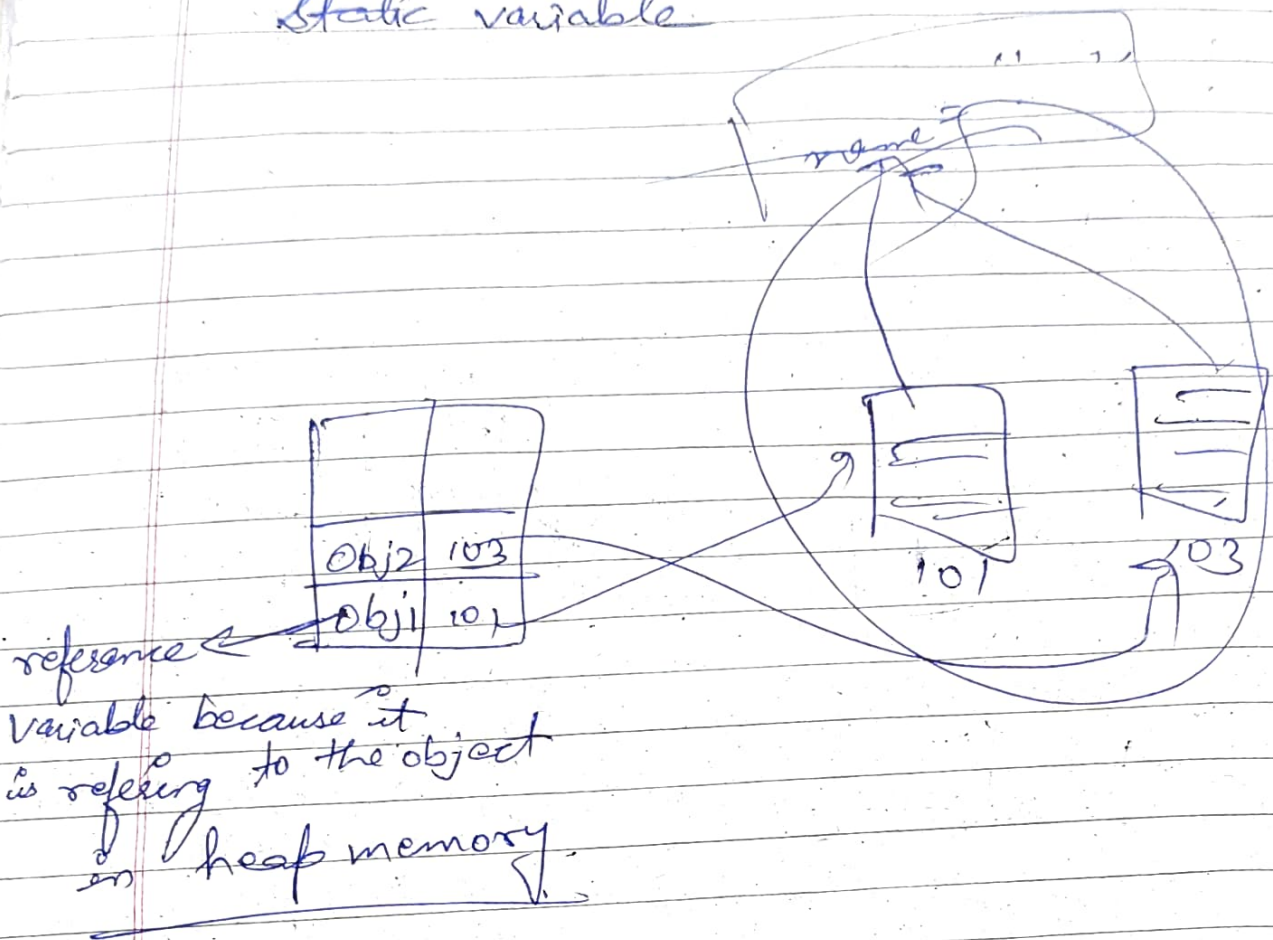 static variable
name =
Obj2 103
Obj1 101
101
103
reference
variable because it
is refering to the object
in heap memory.